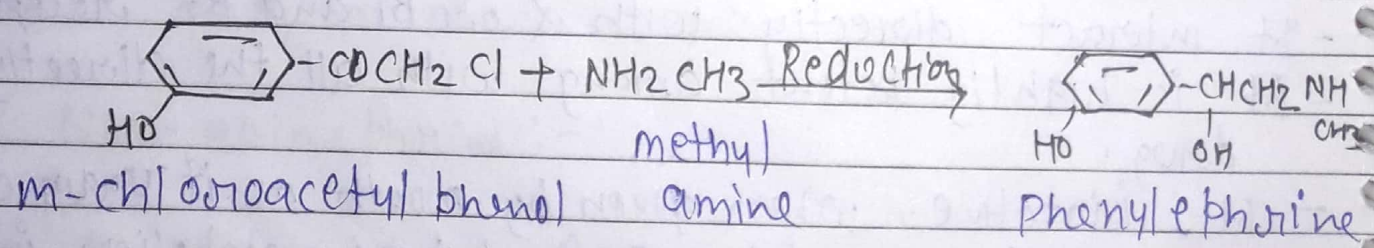 -COCH2 Cl + NH2 CH3 Reduction -CHCH2 NH
HO methyl HO OH CH3
m-chloroacetyl phenol amine phenylephrine